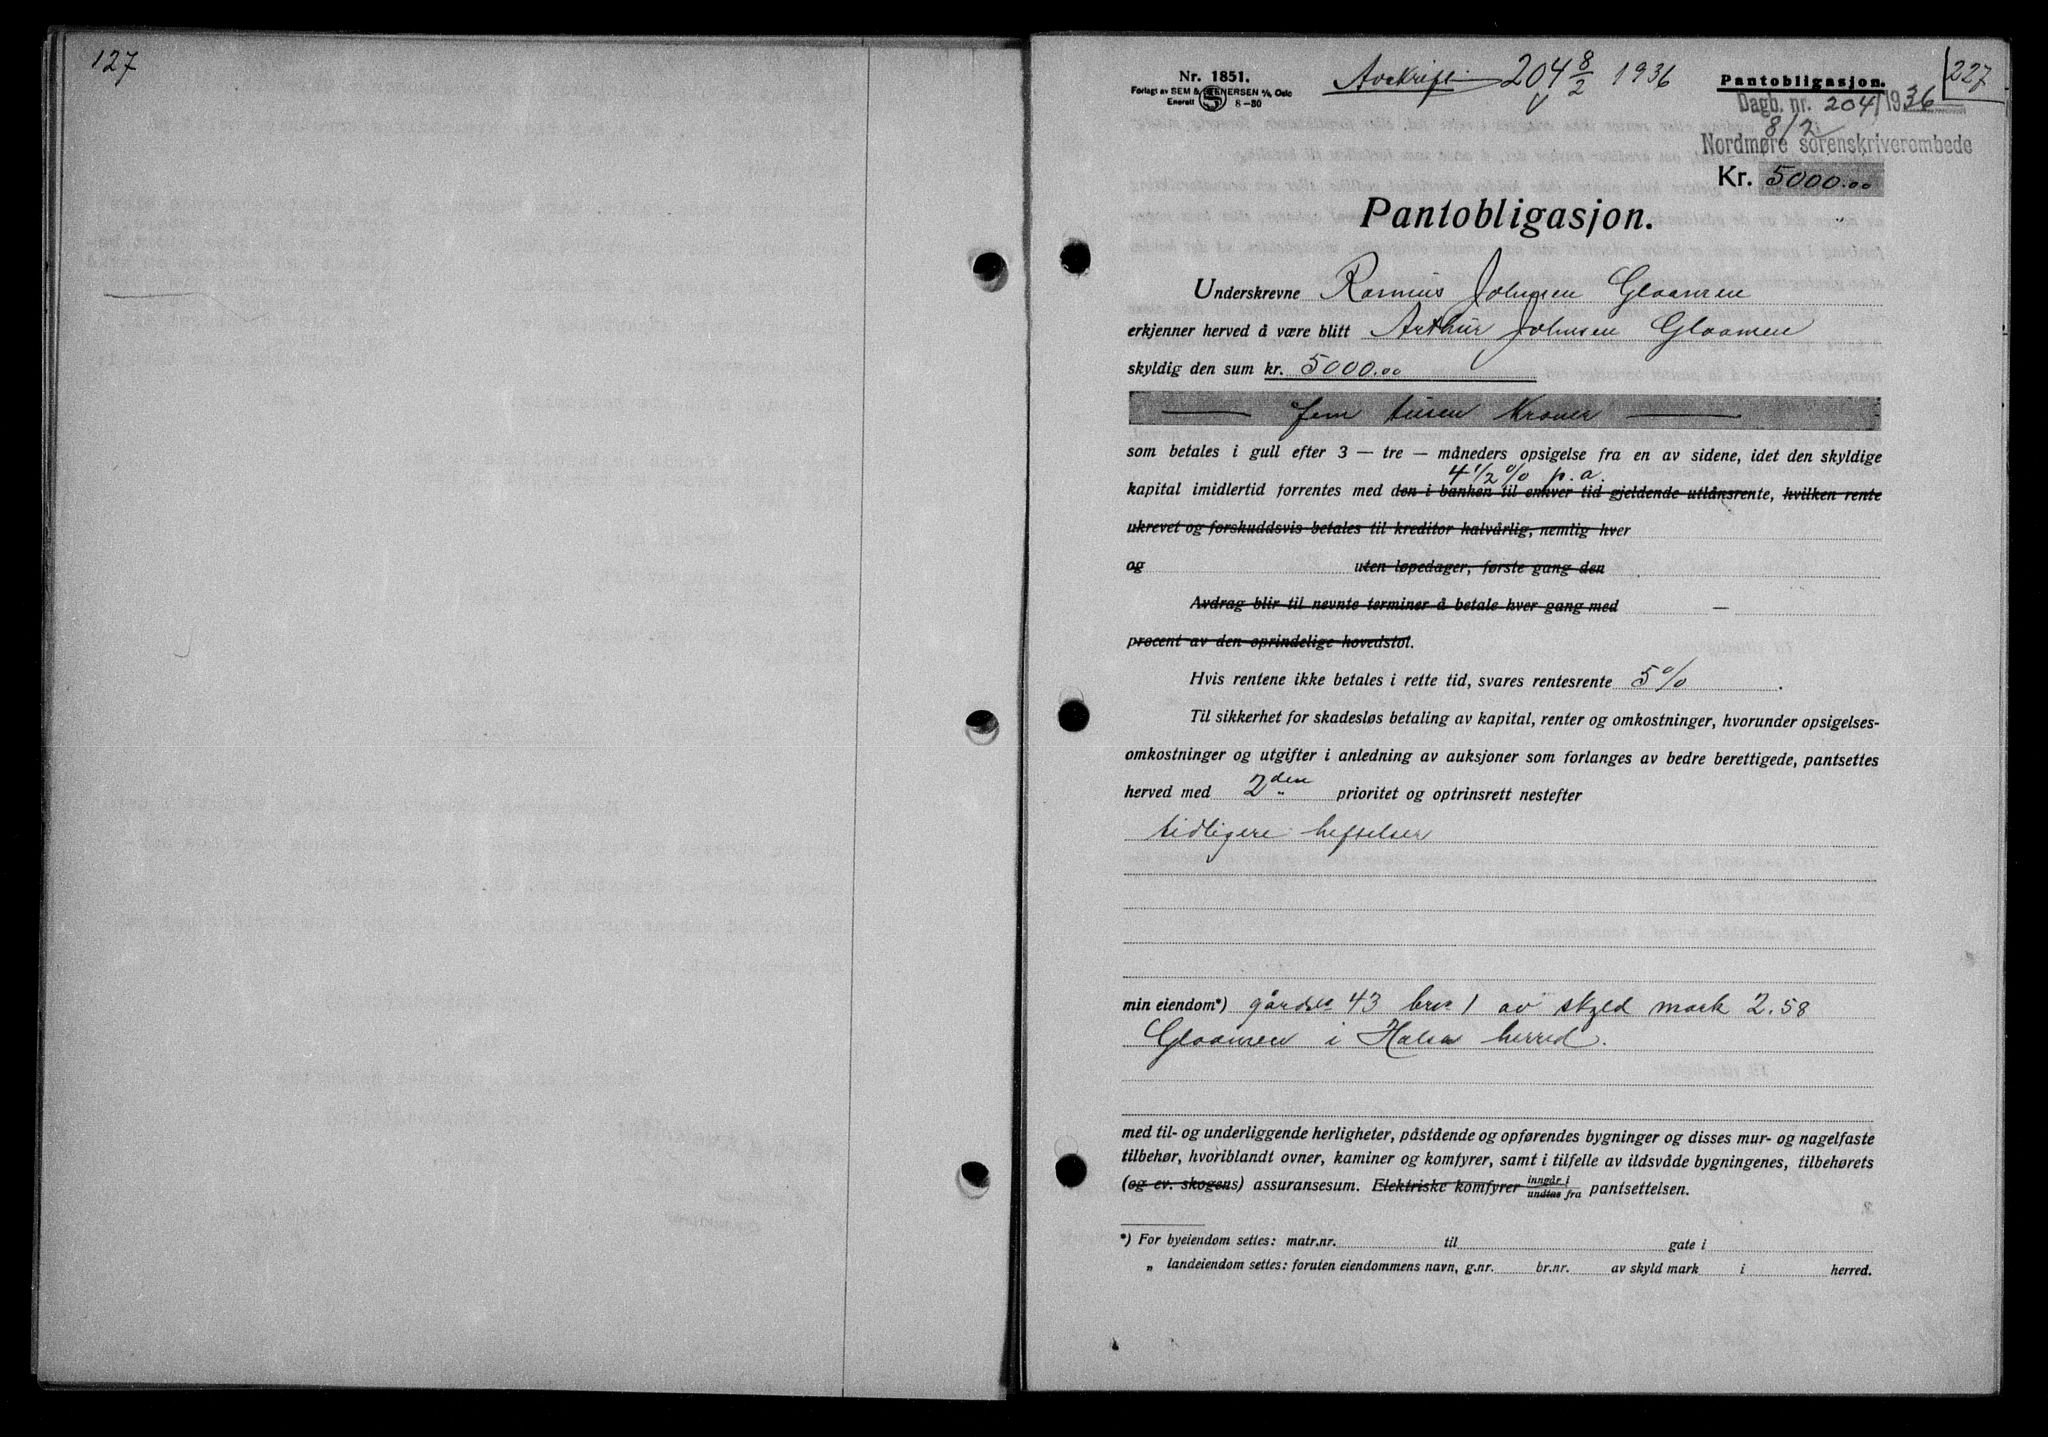 127
Nr. 1851.
Forlagt av SEM & STENERSEN A/S, Oslo
Enerett 8-30
Avskrift. 204 8/2 1936
Pantobligasjon.
227
Dagb. nr. 204/1936
8/2
Nordmøre sorenskriverembede
Kr. 5000.00
Pantobligasjon.
Underskrevne Rasmus Johnsen Glaamen
erkjenner herved å være blitt Arthur Johnsen Glaamen
skyldig den sum kr. 5000.00
fem tusen Kroner
som betales i gull efter 3 — tre — måneders opsigelse fra en av sidene, idet den skyldige
4 1/2 % p.a.
kapital imidlertid forrentes med den i banken til enhver tid gjeldende utlånsrente, hvilken rente
ukrevet og forskuddsvis betales til kreditor halvårlig, nemlig hver
og uten løpedager, første gang den
Avdrag blir til nevnte terminer å betale hver gang med —
procent av den oprindelige hovedstol.
Hvis rentene ikke betales i rette tid, svares rentesrente 5%.
Til sikkerhet for skadesløs betaling av kapital, renter og omkostninger, hvorunder opsigelses-
omkostninger og utgifter i anledning av auksjoner som forlanges av bedre berettigede, pantsettes
herved med 2den prioritet og optrinsrett nestefter
tidligere heftelser
min eiendom*) gårdsnr 43 brnr 1 av skyld mark 2.58
Glaamen i Halsa herred.
med til- og underliggende herligheter, påstående og opførendes bygninger og disses mur- og nagelfaste
tilbehør, hvoriblandt ovner, kaminer og komfyrer, samt i tilfelle av ildsvåde bygningenes, tilbehørets
(og ev. skogens) assuransesum. Elektriske komfyrer inngår i / undtas fra pantsettelsen.
*) For byeiendom settes: matr.nr. til gate i
„ landeiendom settes: foruten eiendommens navn, g.nr. br.nr. av skyld mark i herred.